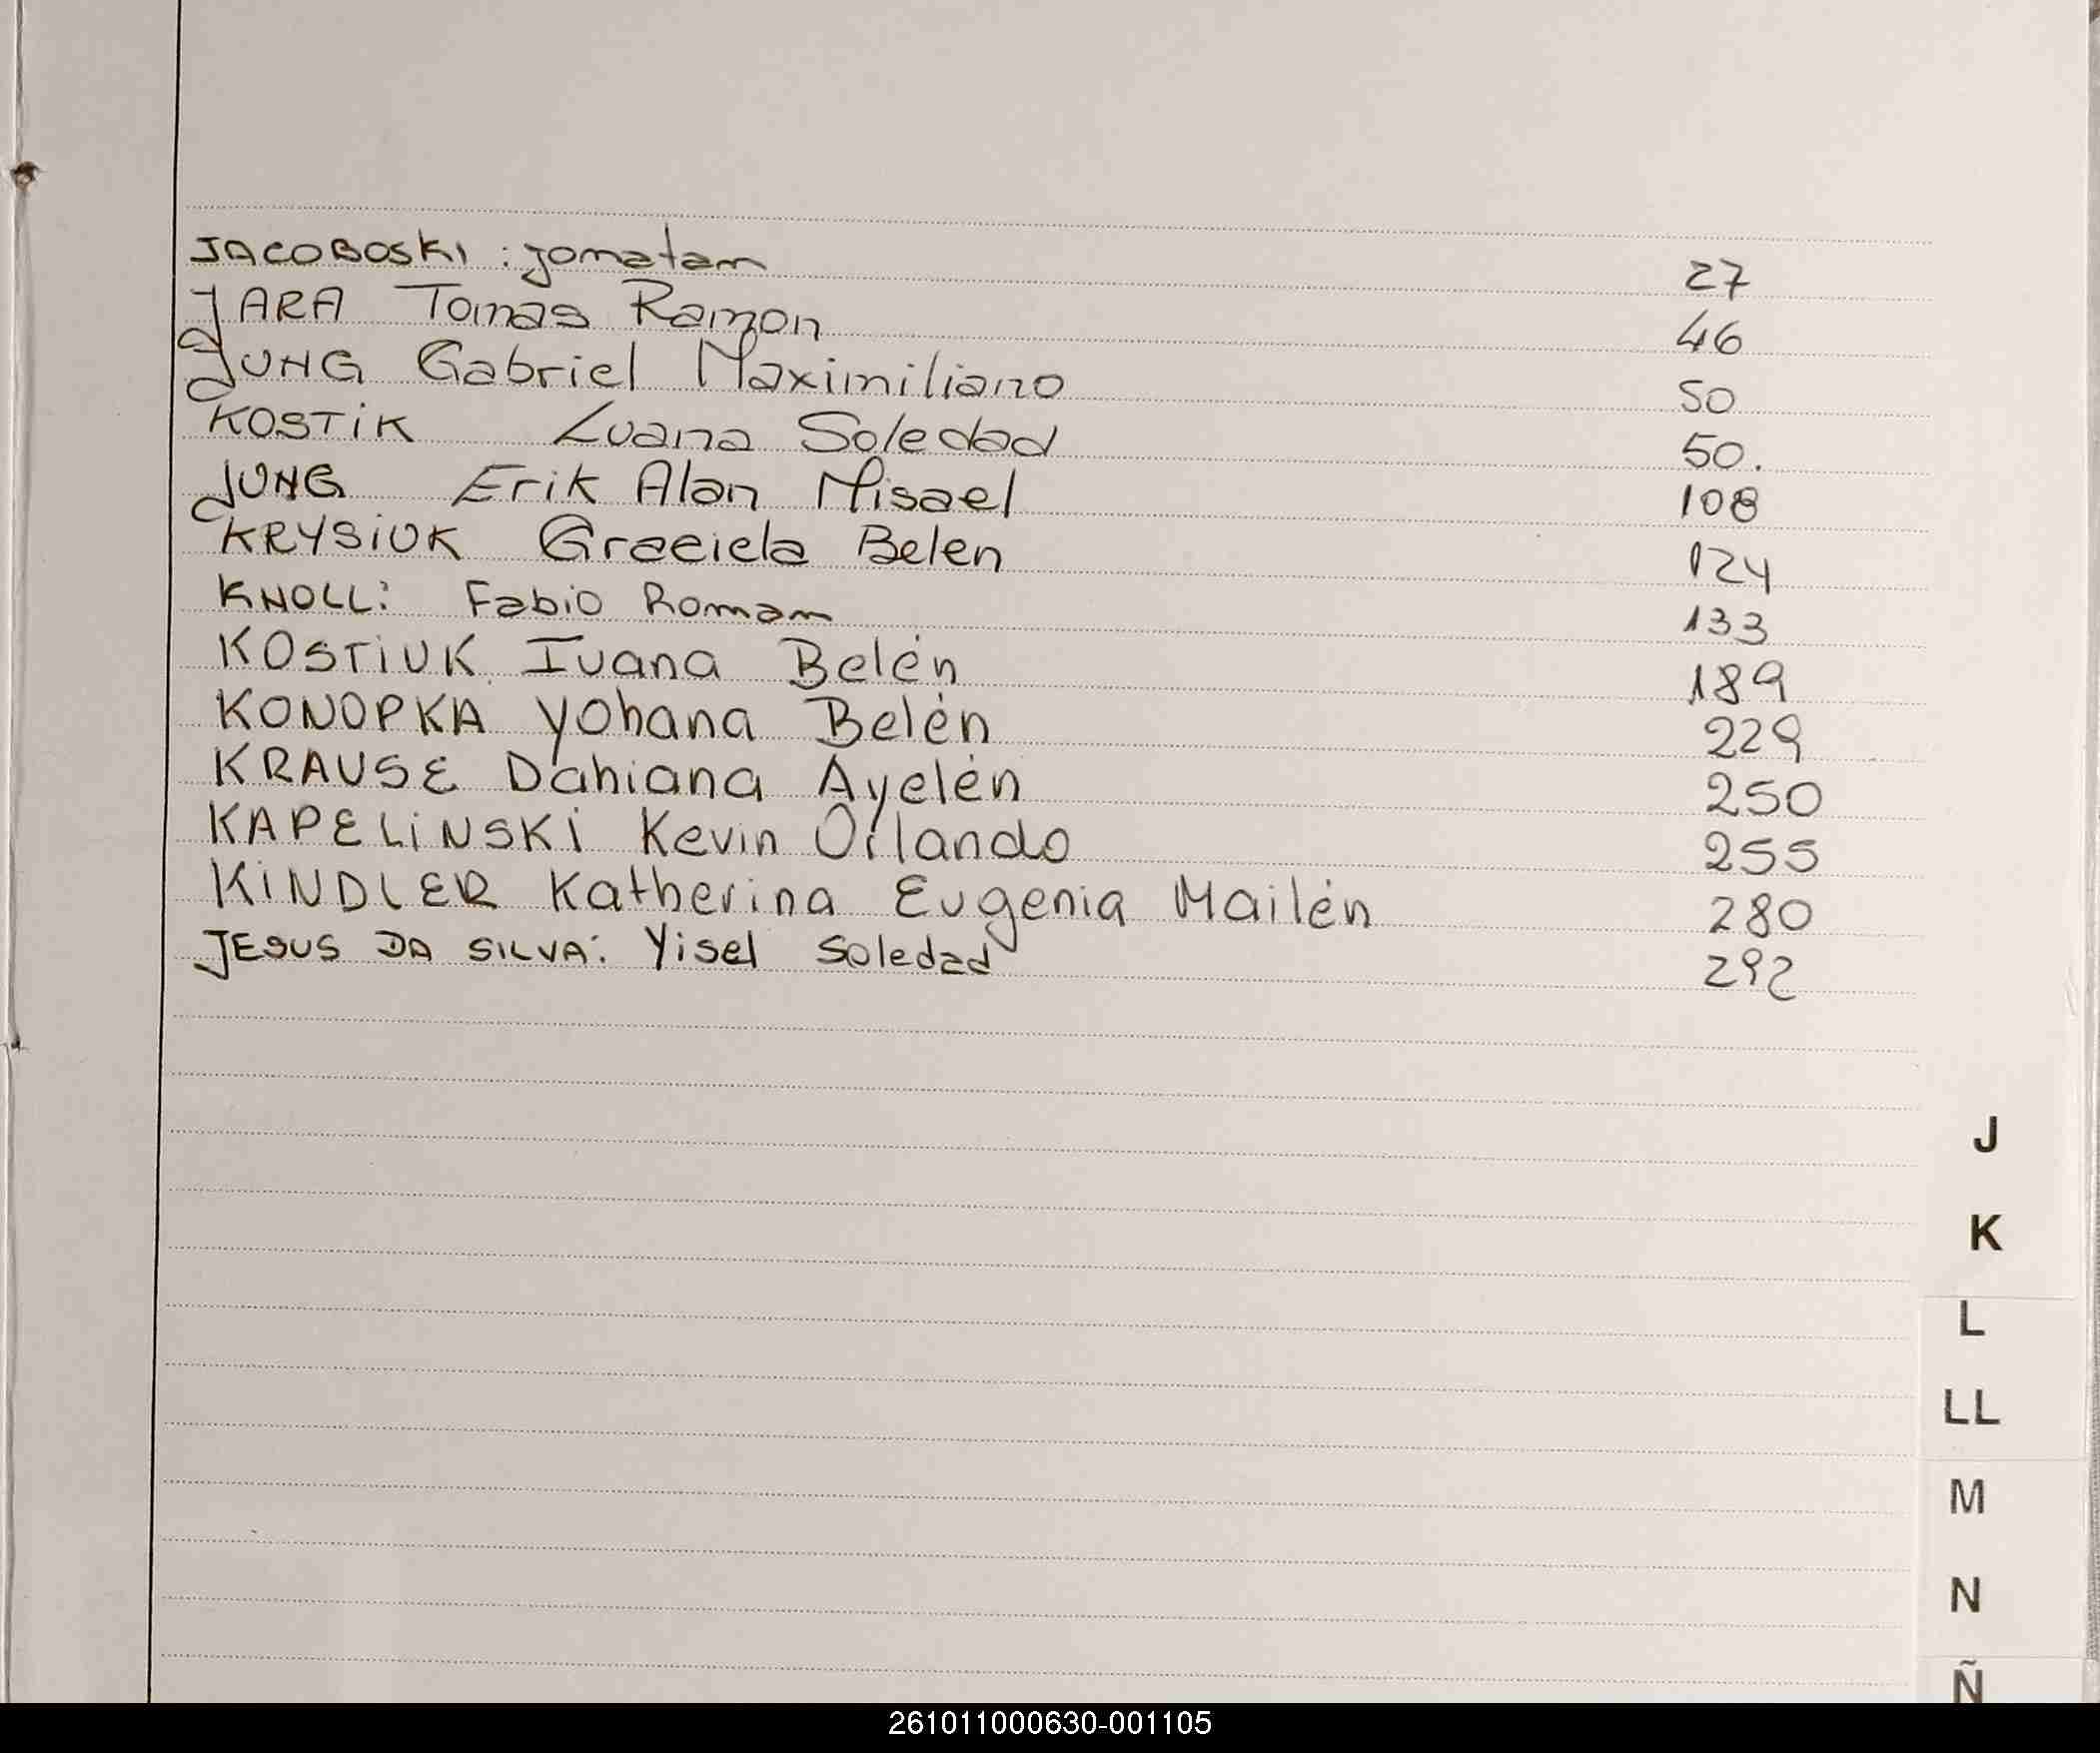 JACOBOSKI : Jonatan 27
JARA Tomas Ramon 46
JUNG Gabriel Maximiliano 50
KOSTiK Luana Soledad 50.
JUNG Erik Alan Misael 108
KRYSiUK Graciela Belen 124
KNOLL: Fabio Roman 133
KOSTiUK Ivana Belén 189
KONOPKA Yohana Belén 229
KRAUSE Dahiana Ayelén 250
KAPELiNSKi Kevin Orlando 255
KiNDLER Katherina Eugenia Mailén 280
JESUS DA SILVA: Yisel Soledad 292
J
K
L
LL
M
N
Ñ
261011000630-001105